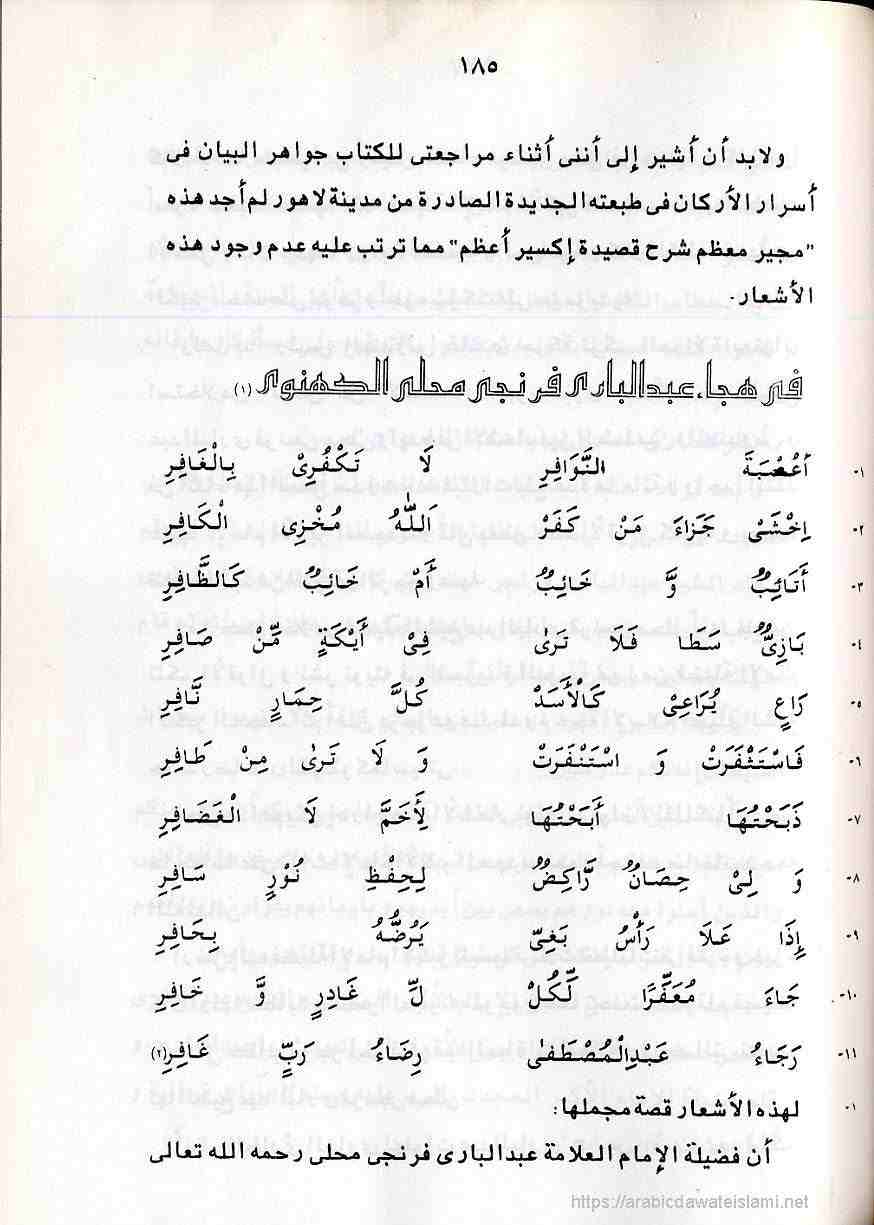 ١٨٥
ولابد أن أشير إلى أننى أثناء مراجعتى للكتاب جواهر البيان فى
أسرار الأركان فى طبعته الجديدة الصادرة من مدينة لاهور لم أجد هذه
"مجير معظم شرح قصيدة إكسير أعظم" مما ترتب عليه عدم وجود هذه
الأشعار.
فى هجاء عبدالبارى فرنجى محلى الكهنوى (١)
١- أَعُصْبَةَ النَّوَافِرِ لَا تَكْفُرِىْ بِالْغَافِرِ
٢- اِخْشَىْ جَزَاءَ مَنْ كَفَرْ اَللّٰهُ مُخْزِى الْكَافِرِ
٣- أَتَائِبٌ وَّ خَائِبٌ أَمْ خَائِبٌ كَالظَّافِرِ
٤- بَازِىٌّ سَطَا فَلَا تَرٰى فِىْ أَيْكَةٍ مِّنْ صَافِرِ
٥- رَاعٍ يُرَاعِىْ كَالْأَسَدْ كُلَّ حِمَارٍ نَّافِرِ
٦- فَاسْتَثْفَرَتْ وَ اسْتَنْفَرَتْ وَ لَا تَرٰى مِنْ طَافِرِ
٧- ذَبَحْتُهَا أَبَحْتُهَا لِأَخَمَّ لَا الْغَضَافِرِ
٨- وَ لِىْ حِصَانٌ رَّاكِضٌ لِحِفْظِ نُوْرٍ سَافِرِ
٩- إِذَا عَلَا رَأْسُ بَغِىّ يَرُضُّهُ بِحَافِرِ
١٠- جَاءَ مُعَفَّرًا لِّكُلْ لِّ غَادِرٍ وَّ خَافِرِ
١١- رَجَاءُ عَبْدِالْمُصْطَفٰى رِضَاءُ رَبٍّ غَافِرِ(٢)
١- لهذه الأشعار قصة مجملها:
أن فضيلة الإمام العلامة عبدالبارى فرنجى محلى رحمه الله تعالى
https://arabicdawateislami.net